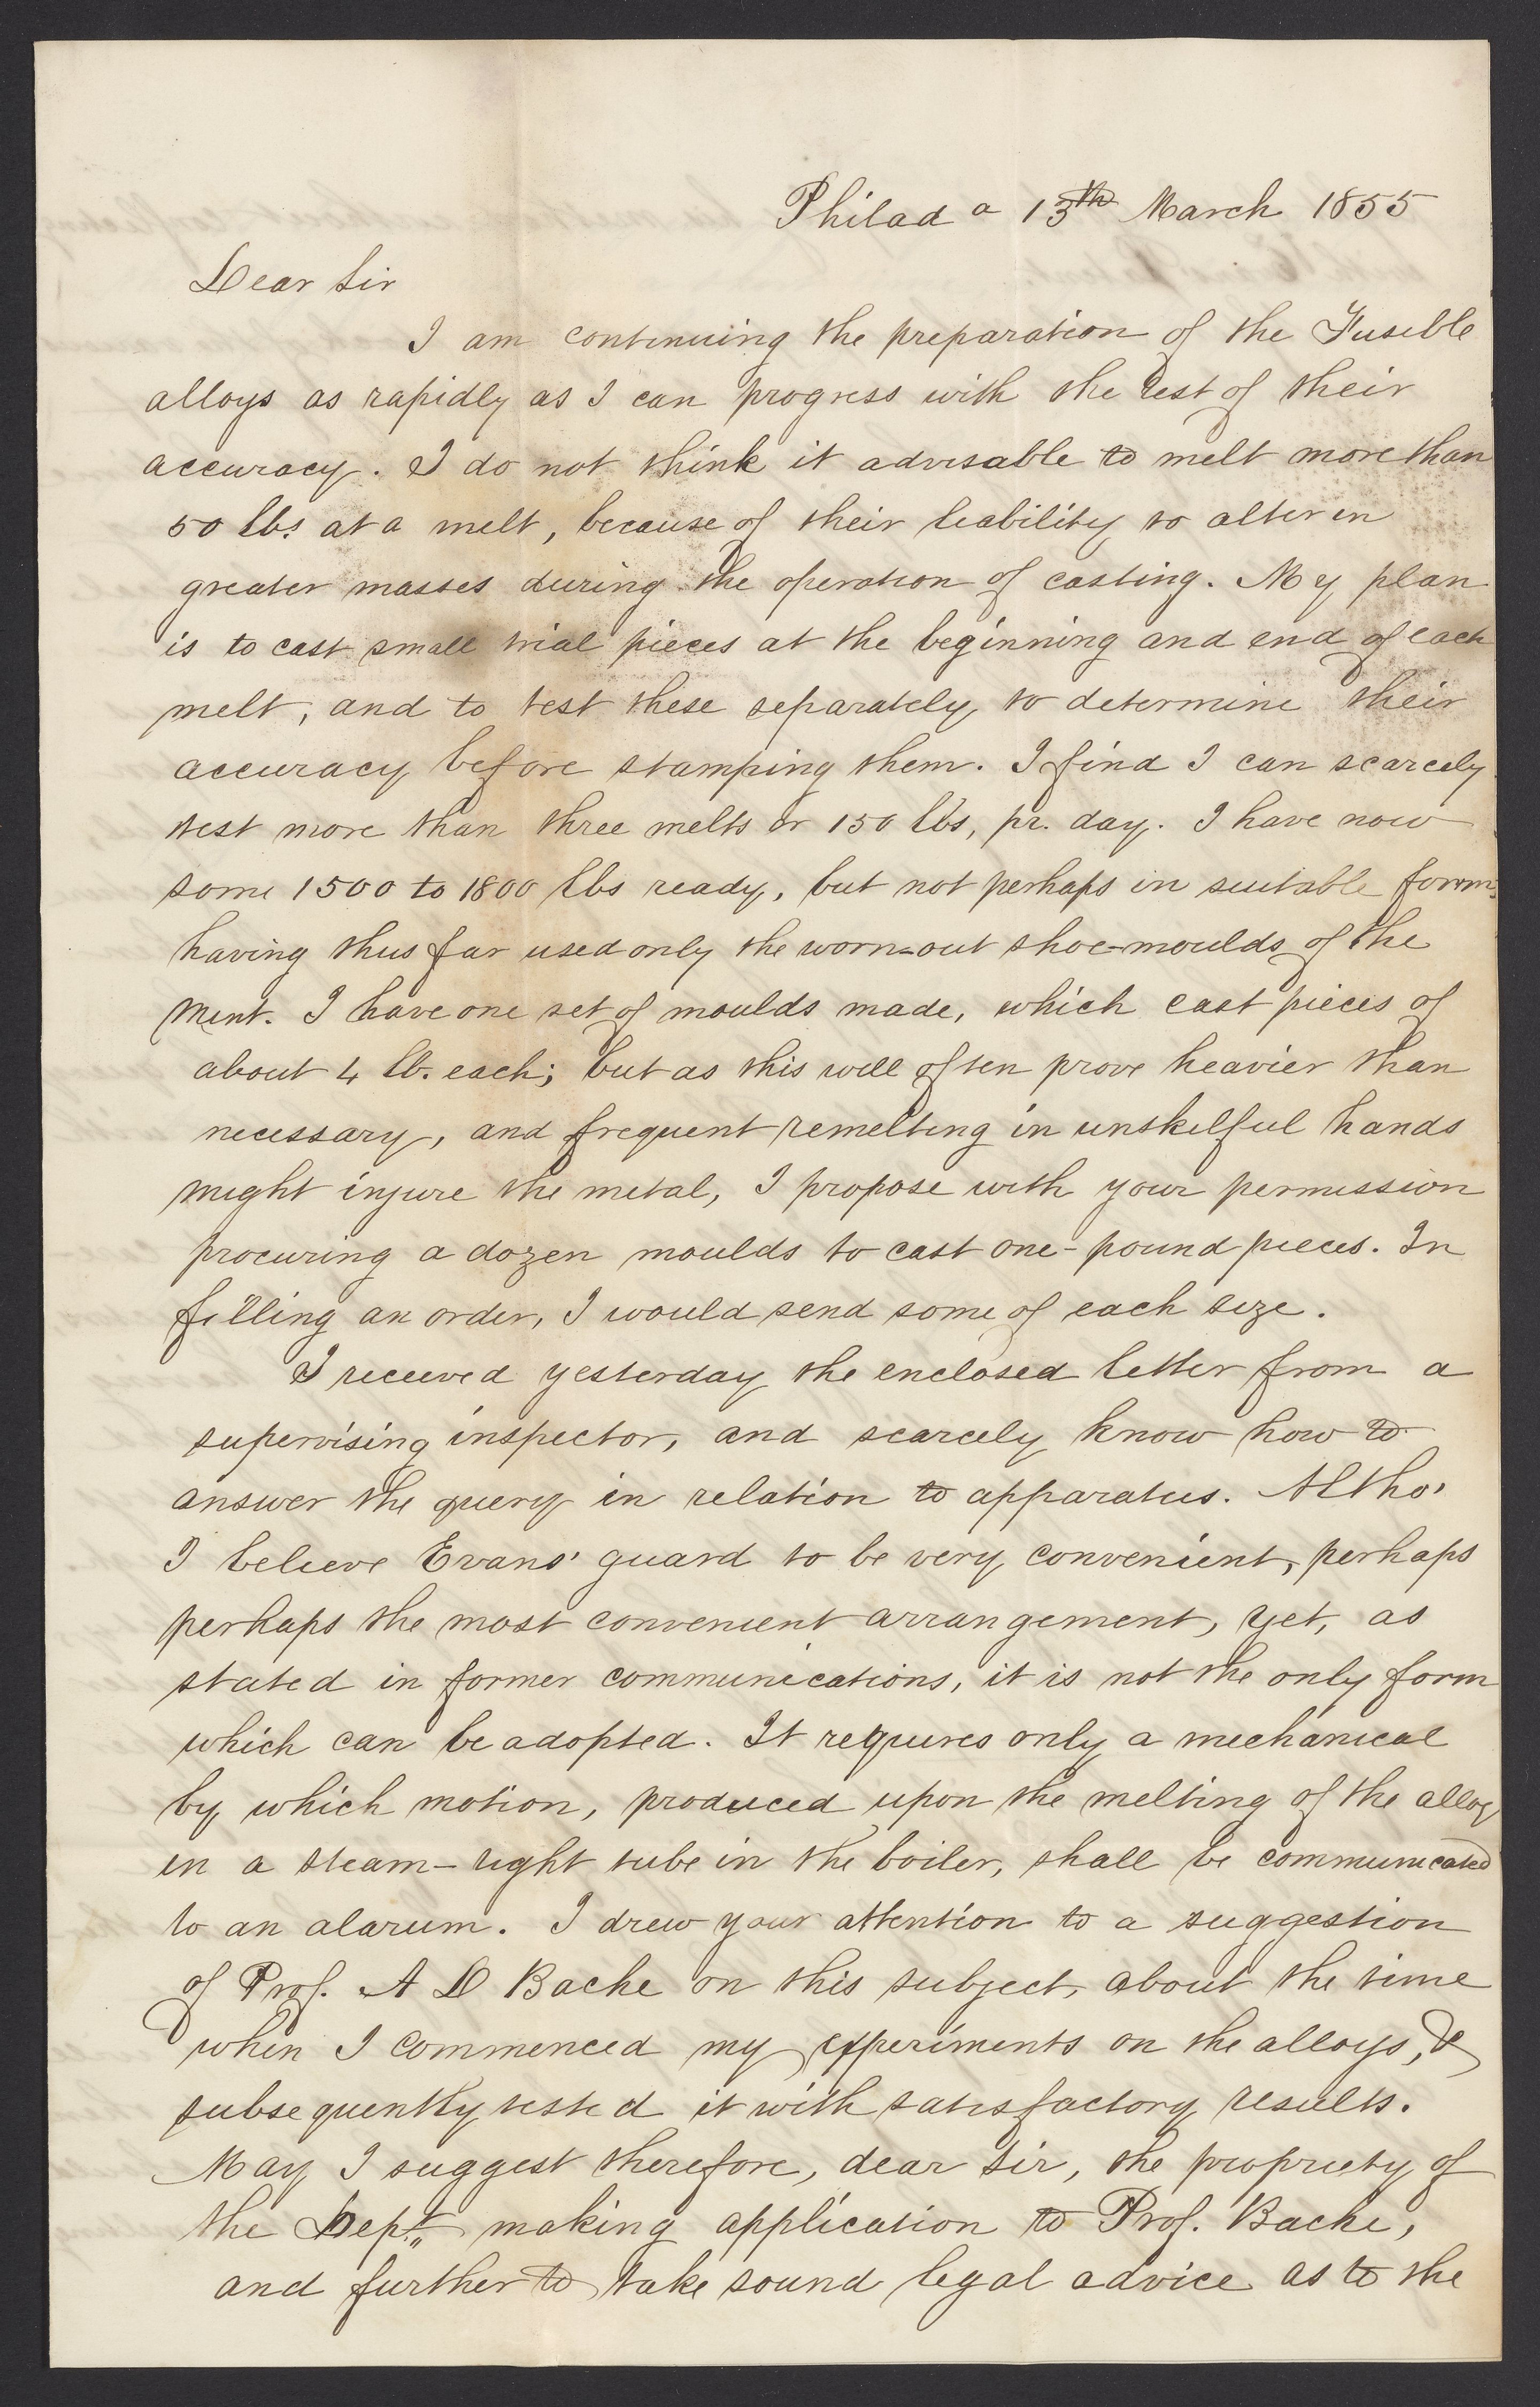 Philad a 13th March 1855
Dear Sir
I am continuing the preparation of the Fusible
alloys as rapidly as I can progress with the test of their
accuracy. I do not think it advisable to melt more than
50 lbs. at a melt, because of their liability to alter in
greater masses during the operation of casting. My plan
is to cast small trial pieces at the beginning and end of each
melt, and to test these separately to determine their
accuracy before stamping them. I find I can scarcely
test more than three melts or 150 lbs, pr. day. I have now
some 1500 to 1800 lbs ready, but not perhaps in suitable form,
having thus far used only the worn-out shoe-moulds of the
Mint. I have one set of moulds made, which cast pieces of
about 4 lb. each; but as this will often prove heavier than
necessary, and frequent remelting in unskilful hands
might injure the metal, I propose with your permission
procuring a dozen moulds to cast one-pound pieces. In
filling an order, I would send some of each size.
I received yesterday the enclosed letter from a
supervising inspector, and scarcely know how to
answer the query in relation to apparatus. Altho'
I believe Evans' guard to be very convenient, perhaps
perhaps the most convenient arrangement, yet, as
stated in former communications, it is not the only form
which can be adopted. It requires only a mechanical
by which motion, produced upon the melting of the alloy
in a steam-tight tube in the boiler, shall be communicated
to an alarum. I drew your attention to a suggestion
of Prof. A D Bache on this subject, about the time
when I commenced my experiments on the alloys, &
subsequently tested it with satisfactory results.
May I suggest therefore, dear Sir, the propriety of
the Dept. making application to Prof. Bache,
and further to take sound legal advice as to the